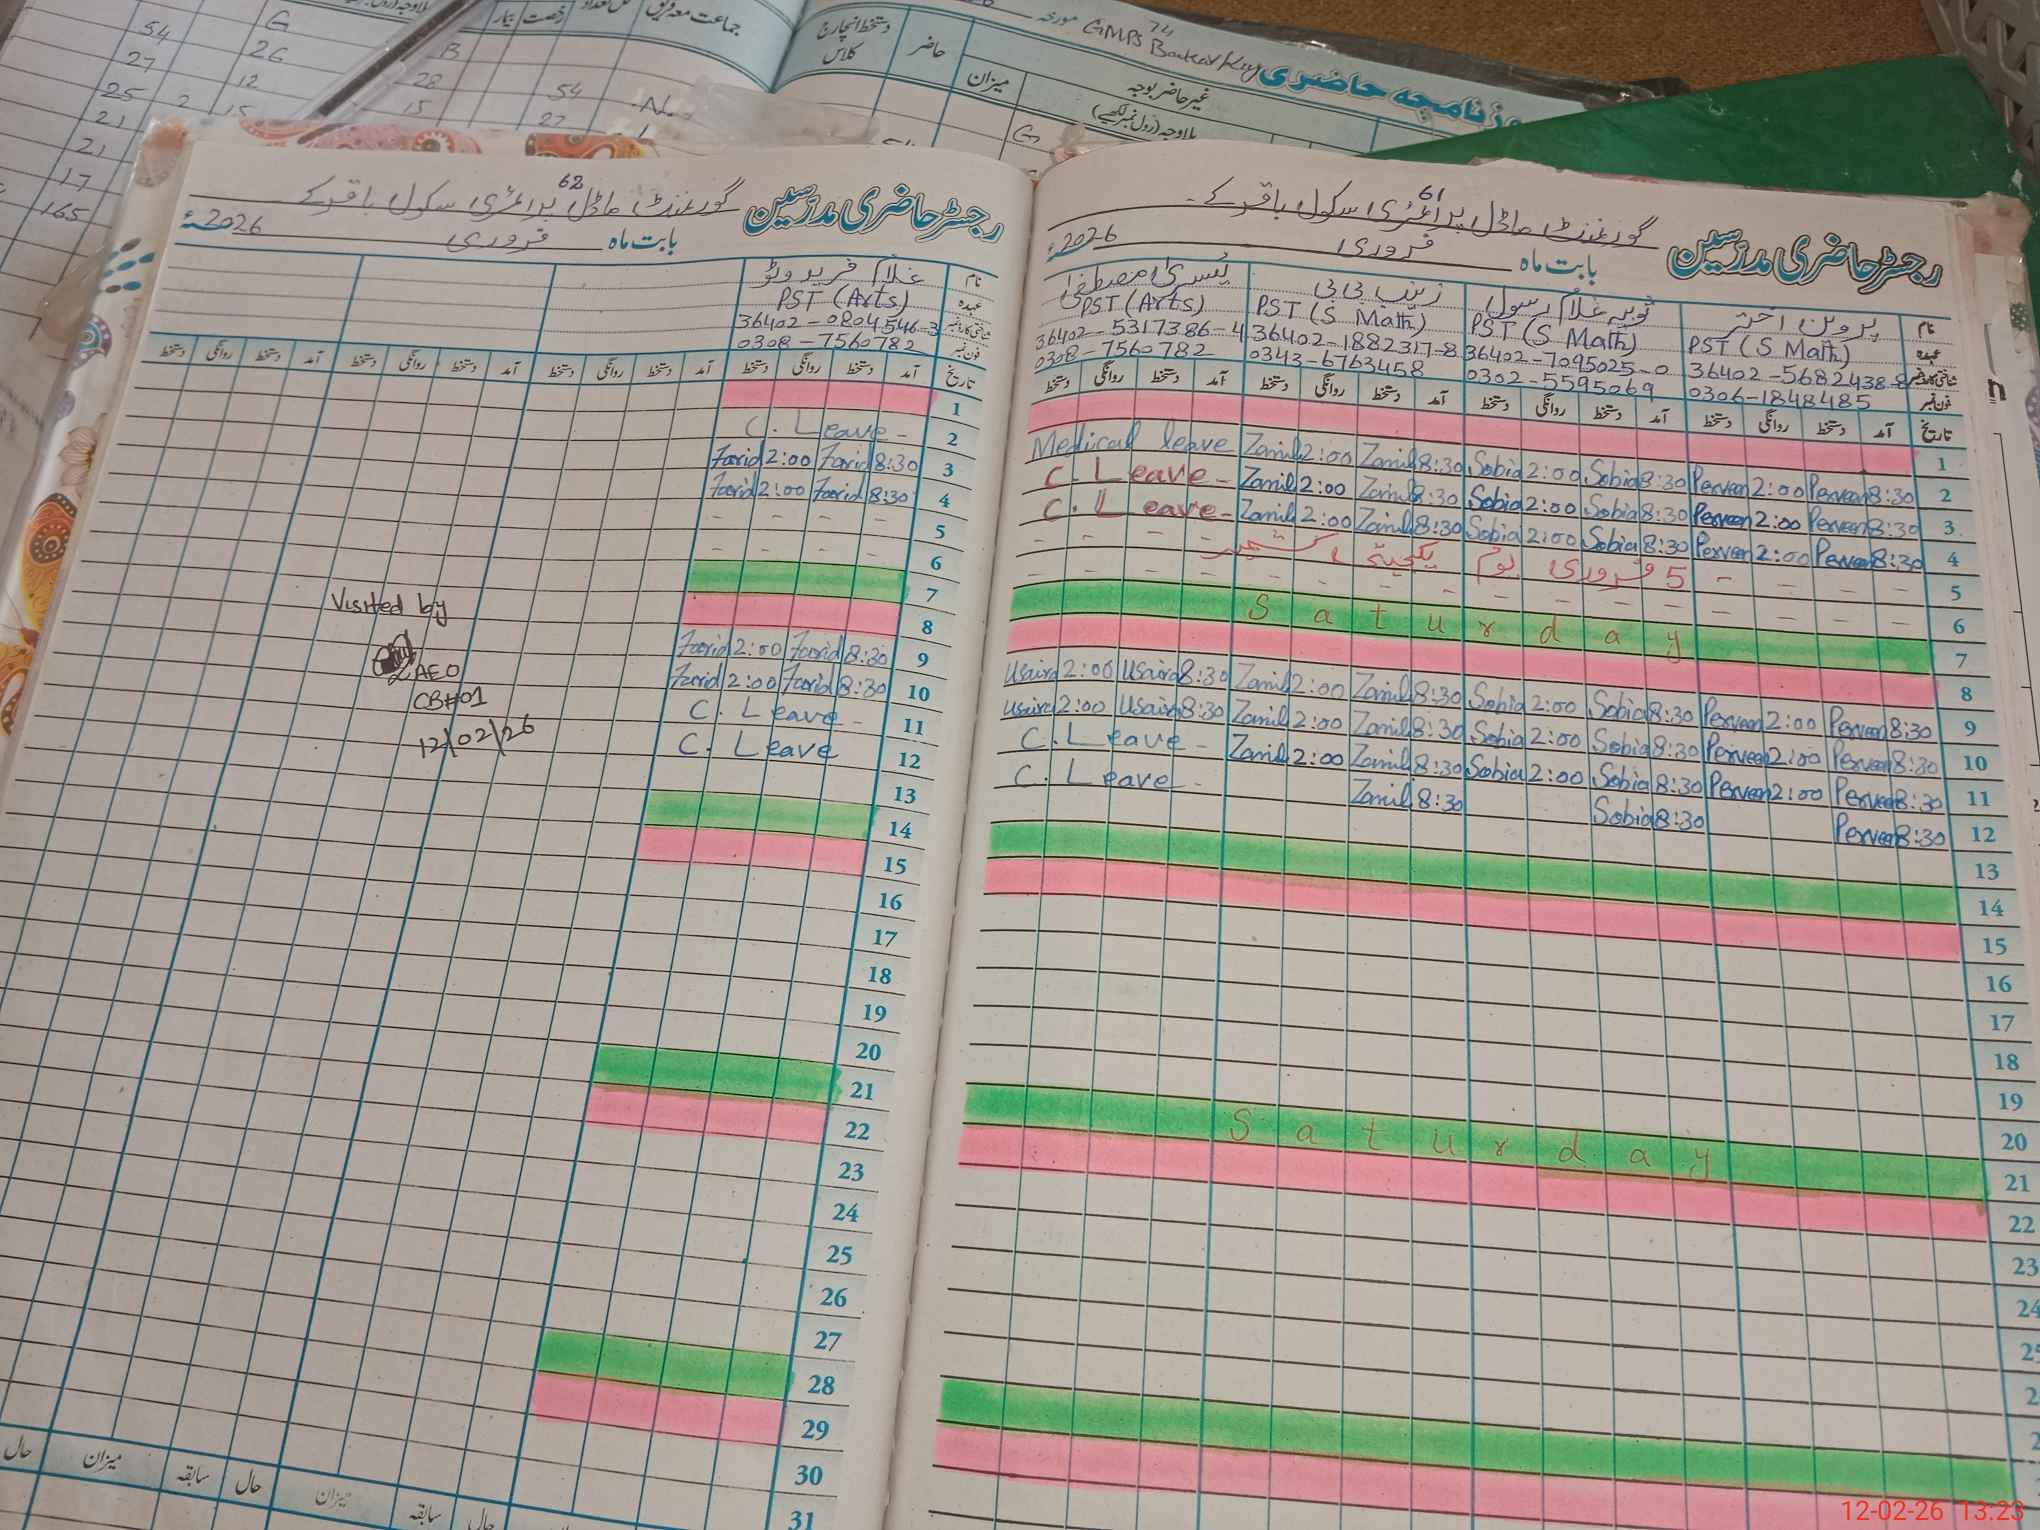 54 G
27 26 B
25 2 12 28
21 15 15 54
21 27
17
165
جماعت معہ فریق
رخصت بیمار
دستخط انچارج کلاس
حاضر
میزان
غیر حاضر بوجہ
بلاوجہ (رول نمبر لکھیے)
G
مورخہ
74
GMPS
روزنامچہ حاضری
62
رجسٹر حاضری مدرسین گورنمنٹ ماڈل پرائمری سکول باقر کے
بابت ماہ فروری 2026ء
نام غلام فرید وٹو
عہدہ PST (Arts)
شناختی کارڈ نمبر 36402-0804546-3
فون نمبر 0308-7560782
تاریخ آمد دستخط روانگی دستخط آمد دستخط روانگی دستخط آمد دستخط روانگی دستخط
1
2 C. Leave -
3 Farid 2:00 Farid 8:30
4 Farid 2:00 Farid 8:30
5 - - - -
6 - - - -
7
8
9 Farid 2:00 Farid 8:30
10 Farid 2:00 Farid 8:30
11 C. Leave -
12 C. Leave
13
14
15
16
17
18
19
20
21
22
23
24
25
26
27
28
29
30
31
Visited by
AEO
CB#01
12/02/26
حال میزان سابقہ حال میزان سابقہ حال
61
رجسٹر حاضری مدرسین گورنمنٹ ماڈل پرائمری سکول باقر کے۔
بابت ماہ فروری 2026ء
نام پروین اختر ثوبیہ غلام رسول زینب بی بی یسریٰ مصطفیٰ
عہدہ PST (S Math) PST (S Math) PST (S Math) PST (Arts)
شناختی کارڈ نمبر 36402-5682438-8 36402-7095025-0 36402-1882317-8 36402-5317386-4
فون نمبر 0306-1848485 0302-5595069 0343-6763458 0308-7560782
تاریخ آمد دستخط روانگی دستخط آمد دستخط روانگی دستخط آمد دستخط روانگی دستخط آمد دستخط روانگی دستخط
1
2 Medical leave Zainib 2:00 Zainib 8:30 Sobia 2:00 Sobia 8:30 Perveen 2:00 Perveen 8:30
3 C. Leave - Zainib 2:00 Zainib 8:30 Sobia 2:00 Sobia 8:30 Perveen 2:00 Perveen 8:30
4 C. Leave - Zainib 2:00 Zainib 8:30 Sobia 2:00 Sobia 8:30 Perveen 2:00 Perveen 8:30
5 - - - - 5 فروری یوم یکجہتی کشمیر - - - -
6 - - - - - - - - - - - - - - -
7 Saturday
8
9 Usaira 2:00 Usaira 8:30 Zainib 2:00 Zainib 8:30 Sobia 2:00 Sobia 8:30 Perveen 2:00 Perveen 8:30
10 Usaira 2:00 Usaira 8:30 Zainib 2:00 Zainib 8:30 Sobia 2:00 Sobia 8:30 Perveen 2:00 Perveen 8:30
11 C. Leave - Zainib 2:00 Zainib 8:30 Sobia 2:00 Sobia 8:30 Perveen 2:00 Perveen 8:30
12 C. Leave - Zainib 8:30 Sobia 8:30 Perveen 8:30
13
14
15
16
17
18
19
20
21 Saturday
22
23
24
25
12-02-26 13:23